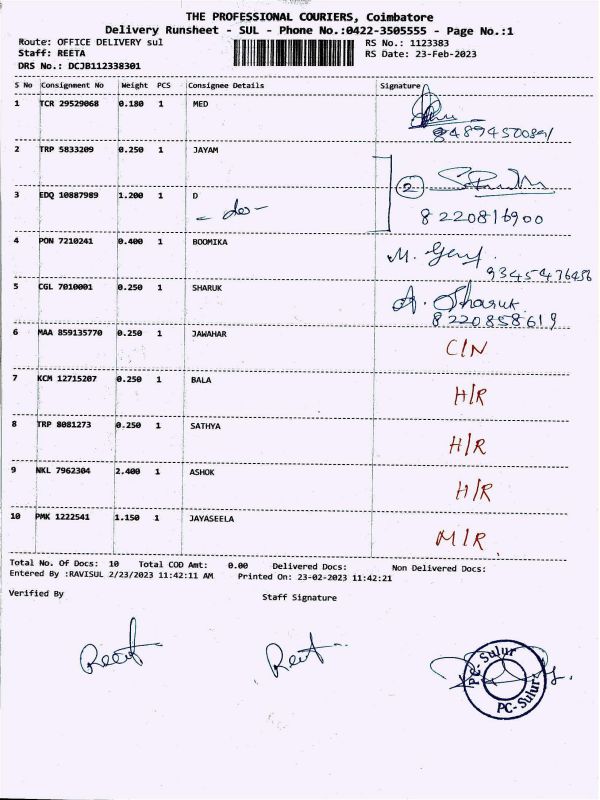 THE PROFESSIONAL COURIERS, Coimbatore
Delivery Runsheet - SUL - Phone No.:0422-3505555 - Page No.:1
Route: OFFICE DELIVERY sul RS No.: 1123383
Staff: REETA RS Date: 23-Feb-2023
DRS No.: DCJB112338301
S No Consignment No Weight PCS Consignee Details Signature
1 TCR 29529068 0.180 1 MED
8489450081
2 TRP 5833209 0.250 1 JAYAM
2
3 EDQ 10887989 1.200 1 D
- do - 8220816900
4 PON 7210241 0.400 1 BOOMIKA
9345476456
5 CGL 7010001 0.250 1 SHARUK A. Sharuk
8220858619
6 MAA 859135770 0.250 1 JAWAHAR C/N
7 KCM 12715207 0.250 1 BALA H/R
8 TRP 8081273 0.250 1 SATHYA H/R
9 NKL 7962304 2.400 1 ASHOK H/R
10 PMK 1222541 1.150 1 JAYASEELA M/R
Total No. Of Docs: 10 Total COD Amt: 0.00 Delivered Docs: Non Delivered Docs:
Entered By :RAVISUL 2/23/2023 11:42:11 AM Printed On: 23-02-2023 11:42:21
Verified By Staff Signature
PC-Sulur
PC-Sulur